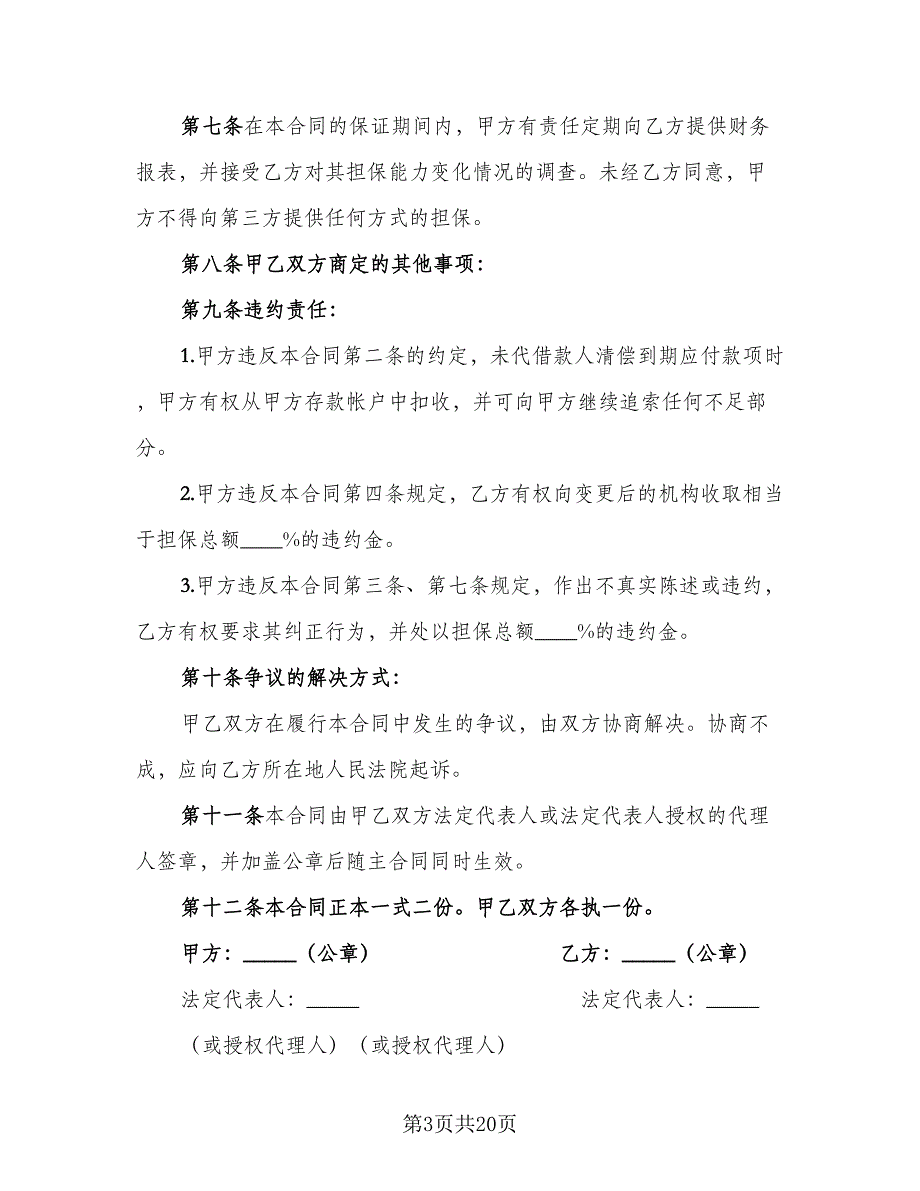 第七条在本合同的保证期间内，甲方有责任定期向乙方提供财务
报表，并接受乙方对其担保能力变化情况的调查。未经乙方同意，甲
方不得向第三方提供任何方式的担保。
第八条甲乙双方商定的其他事项：
第九条违约责任：
1.甲方违反本合同第二条的约定，未代借款人清偿到期应付款项时
，甲方有权从甲方存款帐户中扣收，并可向甲方继续追索任何不足部
分。
2.甲方违反本合同第四条规定，乙方有权向变更后的机构收取相当
于担保总额____%的违约金。
3.甲方违反本合同第三条、第七条规定，作出不真实陈述或违约，
乙方有权要求其纠正行为，并处以担保总额____%的违约金。
第十条争议的解决方式：
甲乙双方在履行本合同中发生的争议，由双方协商解决。协商不
成，应向乙方所在地人民法院起诉。
第十一条本合同由甲乙双方法定代表人或法定代表人授权的代理
人签章，并加盖公章后随主合同同时生效。
第十二条本合同正本一式二份。甲乙双方各执一份。
甲方：_____（公章） 乙方：_____（公章）
法定代表人：_____ 法定代表人：_____
（或授权代理人）（或授权代理人）
第3页共20页